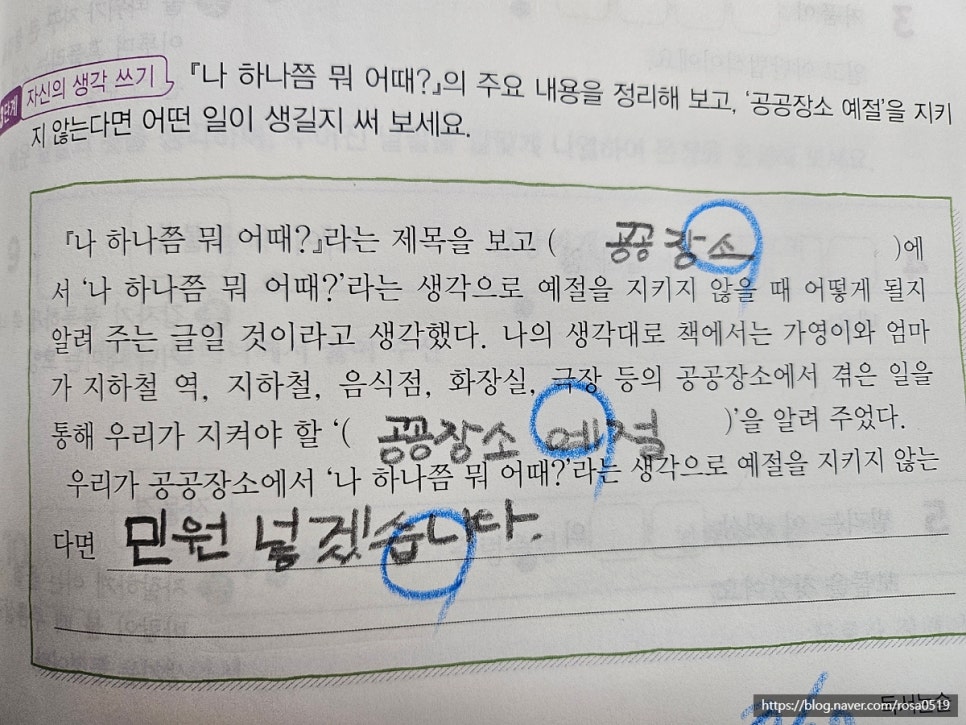 3단계 자신의 생각 쓰기 『나 하나쯤 뭐 어때?』의 주요 내용을 정리해 보고, '공공장소 예절'을 지키
지 않는다면 어떤 일이 생길지 써 보세요.
『나 하나쯤 뭐 어때?』라는 제목을 보고 ( 공공장소 )에
서 '나 하나쯤 뭐 어때?'라는 생각으로 예절을 지키지 않을 때 어떻게 될지
알려 주는 글일 것이라고 생각했다. 나의 생각대로 책에서는 가영이와 엄마
가 지하철 역, 지하철, 음식점, 화장실, 극장 등의 공공장소에서 겪은 일을
통해 우리가 지켜야 할 '( 공공장소 예절 )'을 알려 주었다.
우리가 공공장소에서 '나 하나쯤 뭐 어때?'라는 생각으로 예절을 지키지 않는
다면 민원 넣겠습니다.
독서논술
https://blog.naver.com/rosa0519